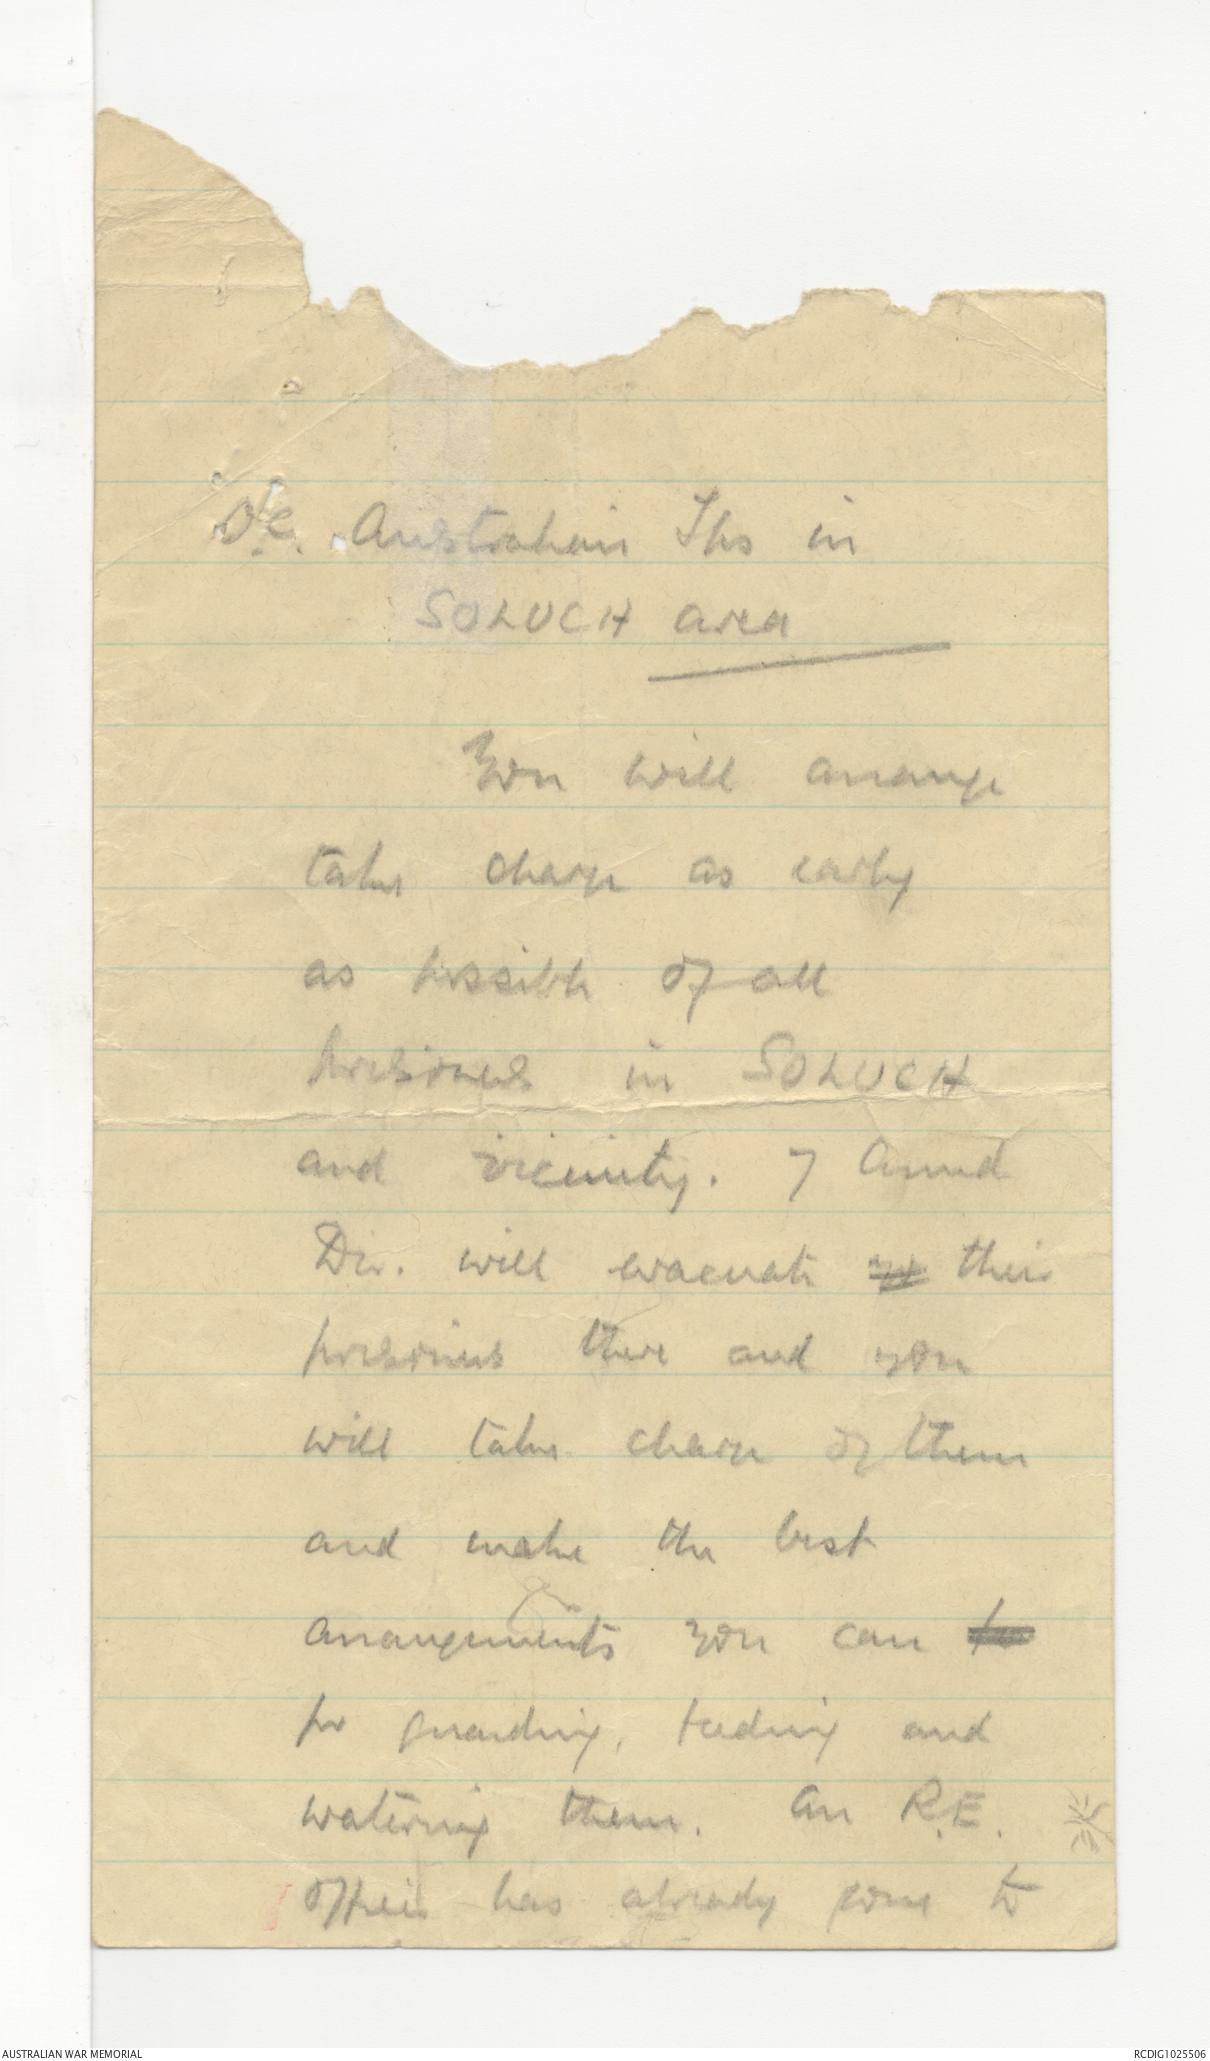 O.C. Australian Tps in
SOLUCH area
You will arrange
take charge as early
as possible of all
prisoners in SOLUCH
and vicinity. 7 Armd
Div. will evacuate their
prisoners there and you
will take charge of them
and make the best
arrangements you can
for guarding, feeding and
watering them. An R.E.
officer has already gone to
AUSTRALIAN WAR MEMORIAL
RCDIG1025506